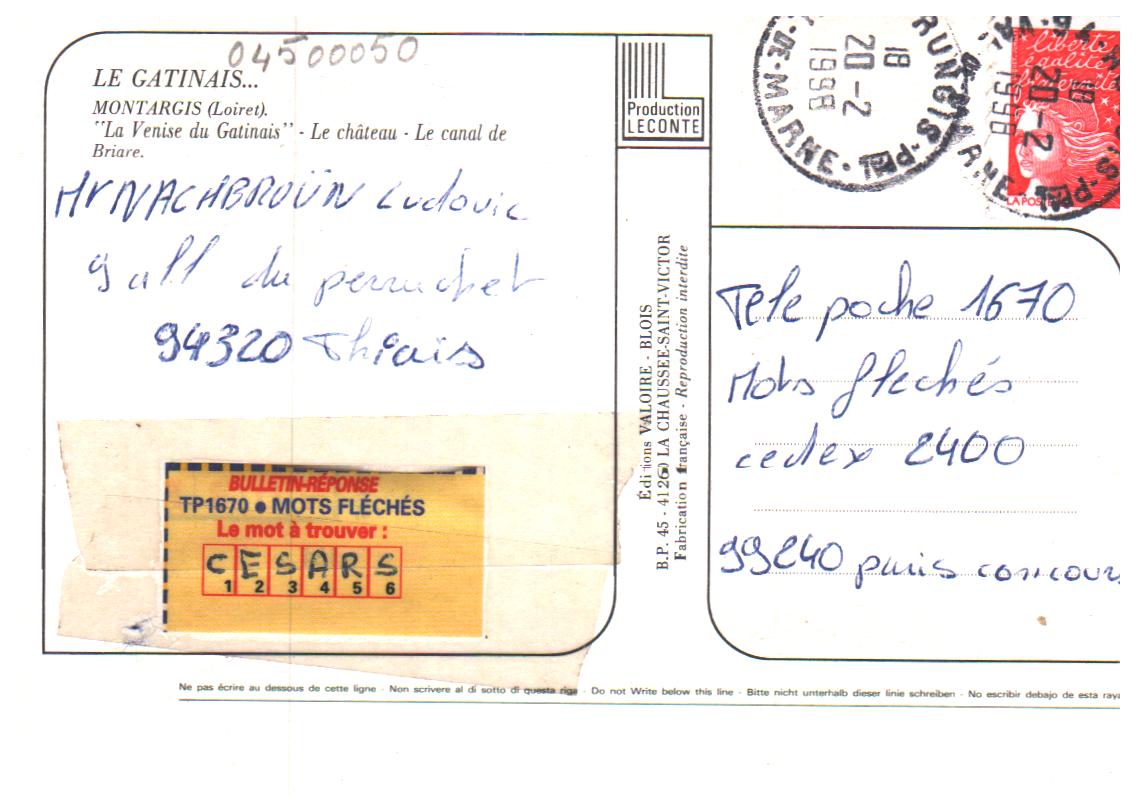 04500050
LE GATINAIS...
MONTARGIS (Loiret).
"La Venise du Gatinais" - Le château - Le canal de
Briare.
Mr NACABROÜN Ludovic
9 all du perruchet
94320 Thiais
BULLETIN-RÉPONSE
TP1670 ● MOTS FLÉCHÉS
Le mot à trouver :
C E S A R S
1 2 3 4 5 6
Production
LECONTE
Éditions VALOIRE - BLOIS
B.P. 45 - 41260 LA CHAUSSEE-SAINT-VICTOR
Fabrication française - Reproduction interdite
RUNGIS-PPAL
18
20-2
1998
DE-MARNE
liberté
égalité
fraternité
18
20-2
1998
LA POS
Tele poche 1670
Mots flechés
cedex 2400
99240 paris concours
Ne pas écrire au dessous de cette ligne - Non scrivere al di sotto di questa riga - Do not Write below this line - Bitte nicht unterhalb dieser linie schreiben - No escribir debajo de esta raya